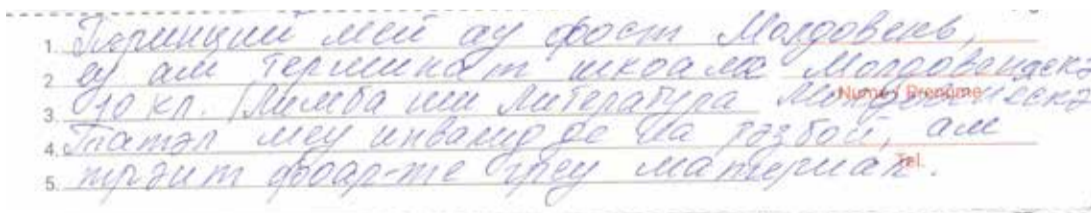 1. Пэринций мей ау фост Молдовень,
2. еу ам терминат шкоала Молдовеняскэ
3. 10 кл. /Лимба ши Литература Nume / Prenume
4. Татэл меу инвалид де ла рэзбой, ам Tel.
5. трэит фоар-те греу материал.